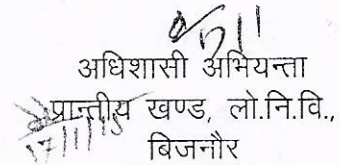 अधिशासी अभियन्ता
प्रान्तीय खण्ड, लो.नि.वि.,
बिजनौर